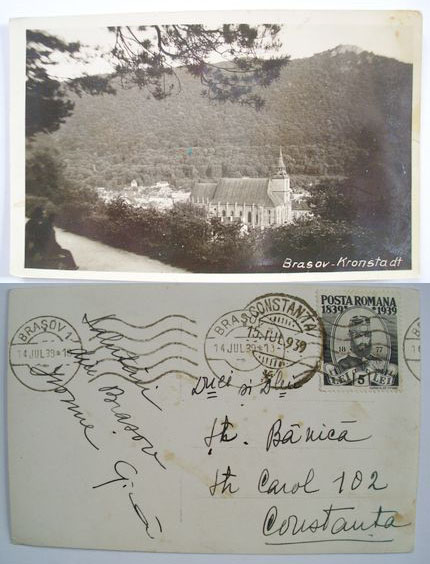 Brasov-Kronstadt
BRAȘOV 1
14 JUL.39
BRAȘ
14 JUL.39
CONSTANȚA
15 JUL 939
POSTA ROMANA
1839 1939
18 77
LEI 5 LEI
Salutări
din Brașov
D-nei și D-lui
Șt. Bănică
Str Carol 102
Constanța